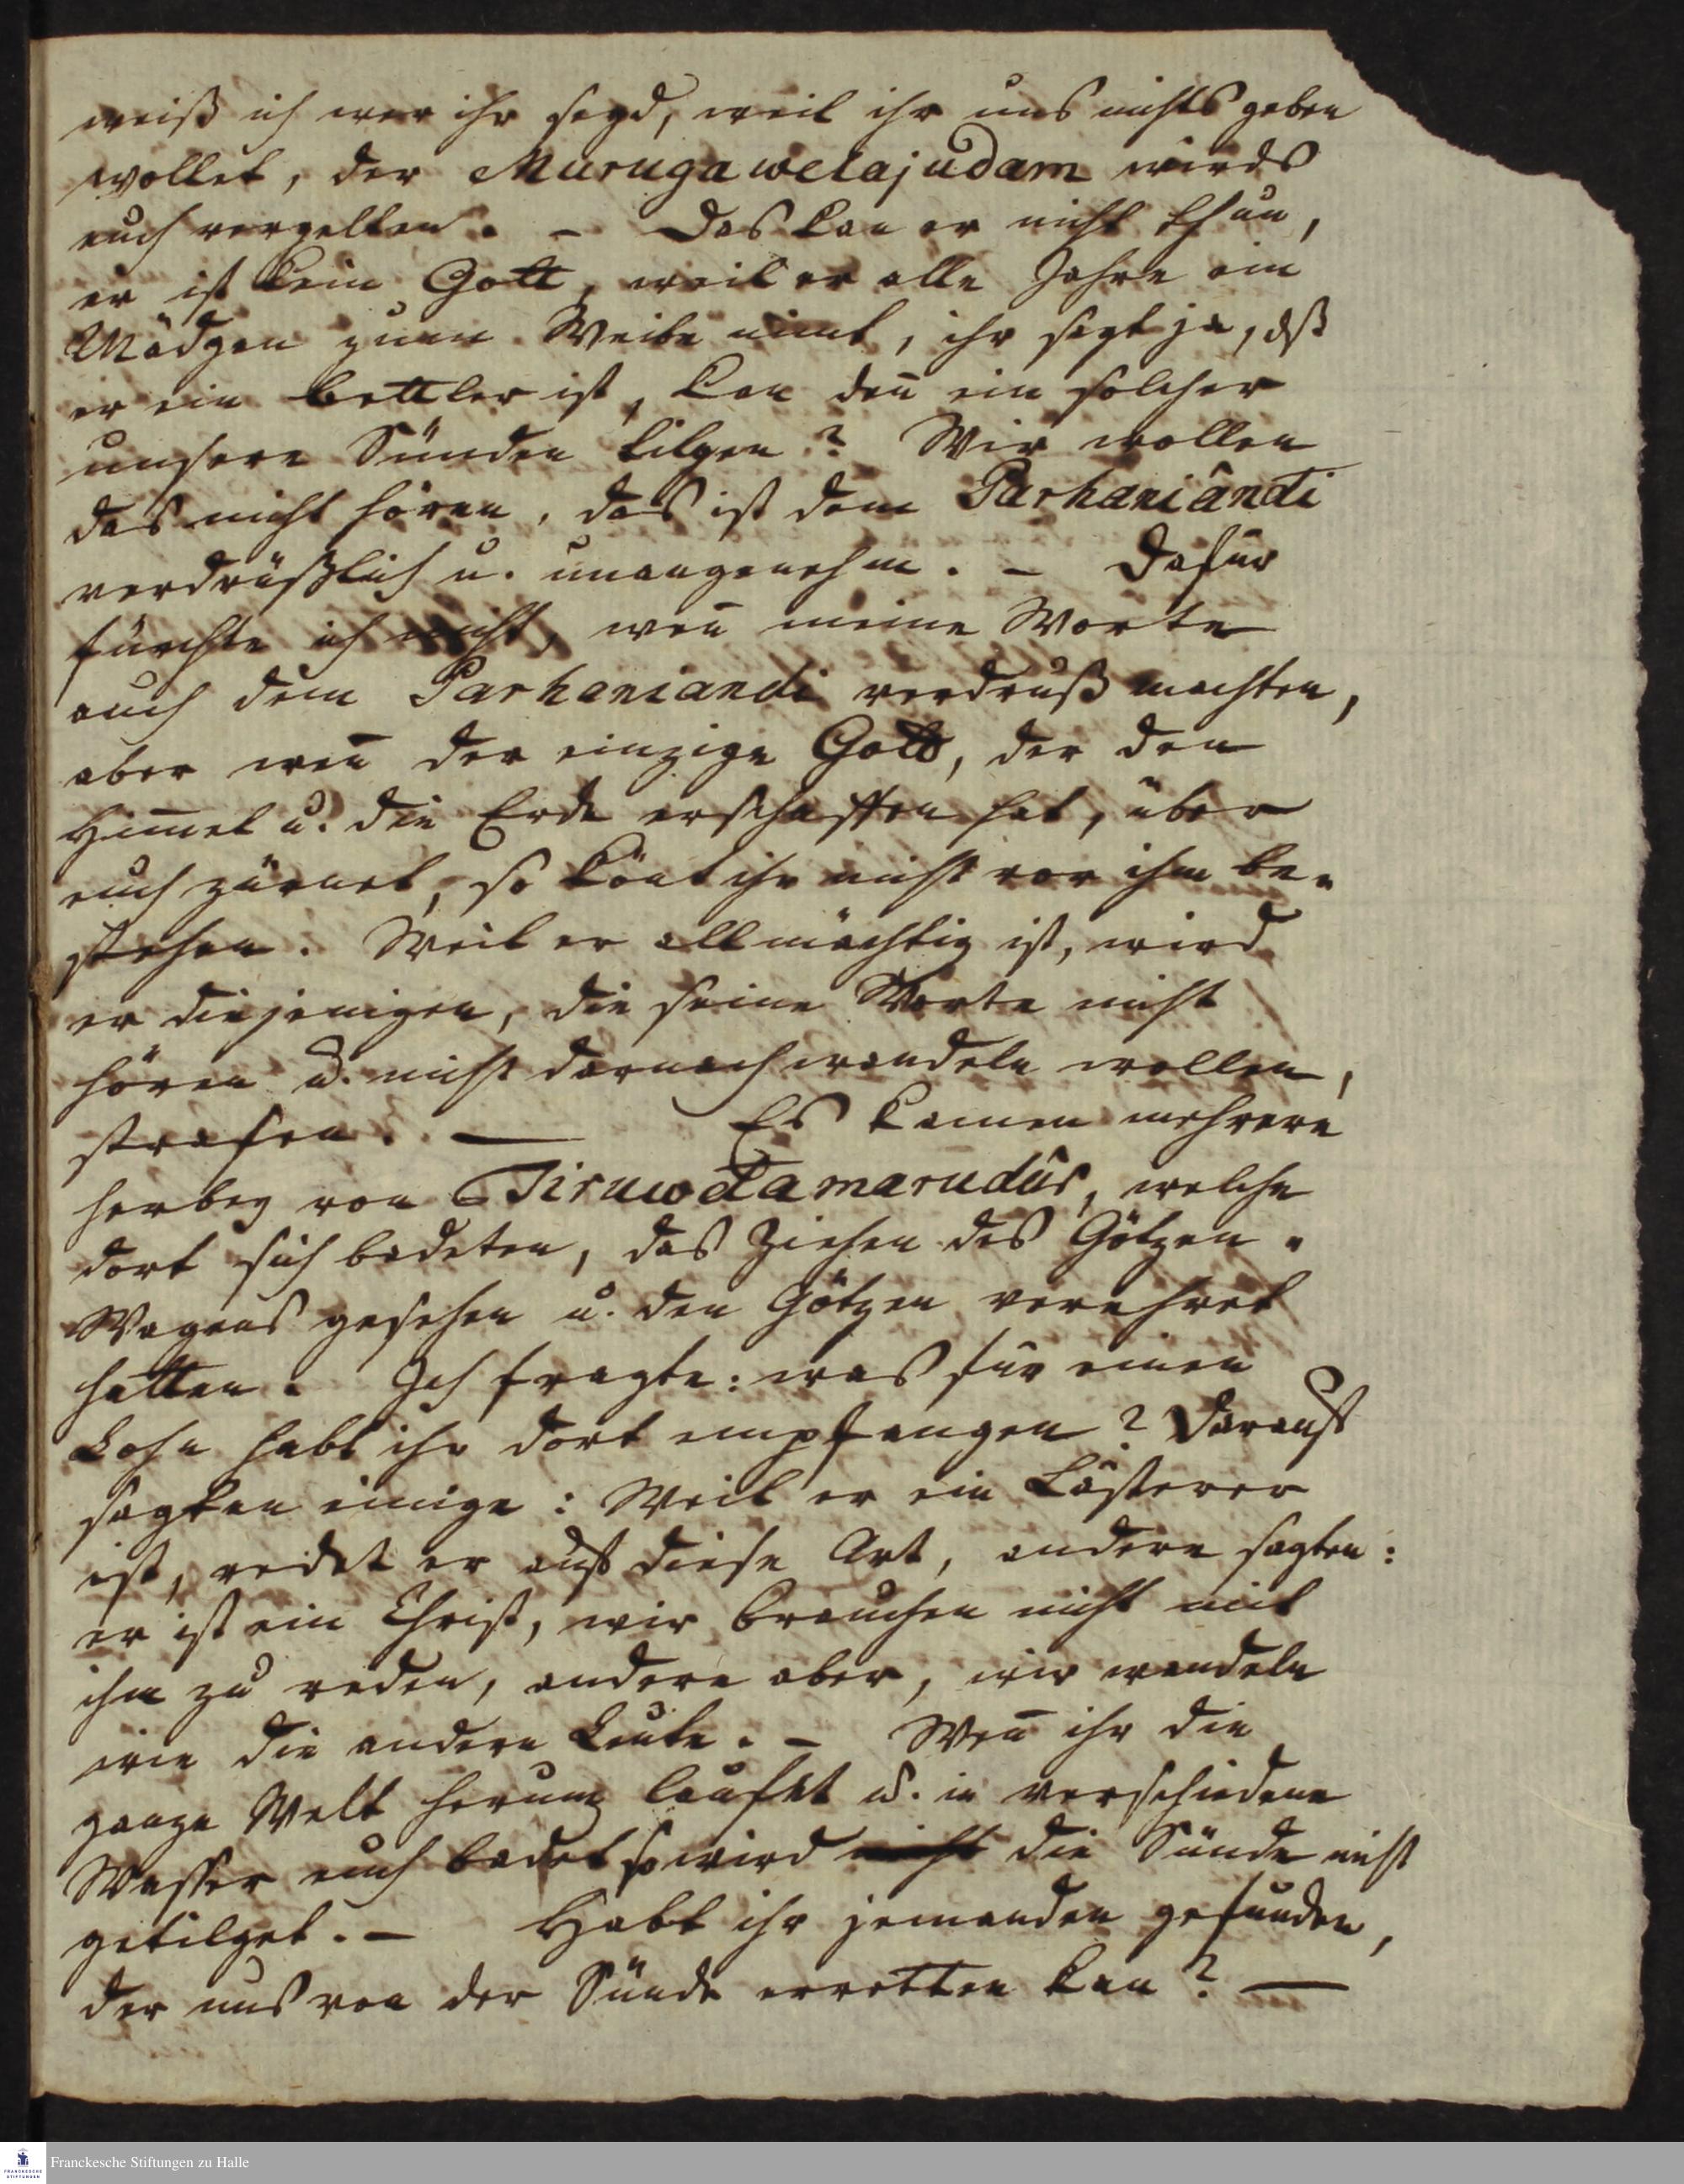 weiß ich wer ihr seyd, weil ihr uns nichts geben
wollet, der Murugawelajudam wirds
euch vergelten. – Das kan er nicht thun,
er ist kein Gott, weil er alle Jahre ein
Mädgen zum Weibe nimt, ihr sagt ja, dß
er ein bettler ist, kan den̄ ein solcher
unsere Sünden tilgen? Wir wollen
das nicht hören, das ist dem Parhaniândi
verdrüßlich u. unangenehm. – Dafür
fürchte ich nicht, wen̄ meine Worte
auch dem Parhaniandi verdruß machten,
aber wen̄ der einzige Gott, der den
Him̄el u. die Erde erschaffen hat, über
euch zürnet, so könt ihr nicht vor ihm be-
stehen. Weil er allmächtig ist, wird
er diejenigen, die seine Worte nicht
hören u. nicht darnach wandeln wollen,
strafen. — Es kamen mehrere
herbey von Tiruwdamarudûr, welche
dort sich badeten, das Ziehen des Götzen-
Wagens gesehen u. den Götzen verehret
hatten. Ich fragte: was für einen
Lohn habt ihr dort empfangen? Darauf
sagten einige: Weil er ein Lästerer
ist, redet er auf diese Art, andere sagten:
er ist ein Christ, wir brauchen nicht mit
ihm zu reden, andere aber, wir wandeln
wie die andern Leute. – Wen̄ ihr die
ganze Welt herum laufet u. in verschiedene
Wasser euch badet so wird nicht die Sünde nicht
getilget. – Habt ihr jemanden gefunden,
der uns von der Sünde erretten kan? —
Franckesche Stiftungen zu Halle
FRANCKESCHE
STIFTUNGEN